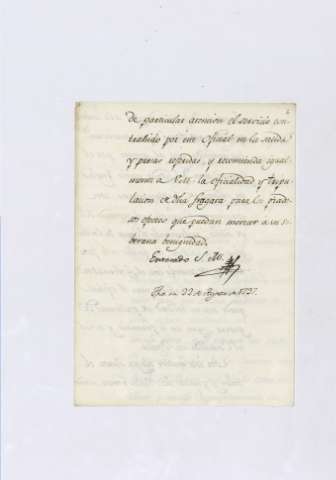 de particular atencion el servicio con-
trahido por este Oficial en la salida
y presas referidas, y recomienda igual
mente a V.M. la oficialidad y tripu
lacion de dha fragata para los piado
sos efectos que puedan merecer a su so
berana benignidad.
Enterado S. M.
Fho en 22 de de 1797.